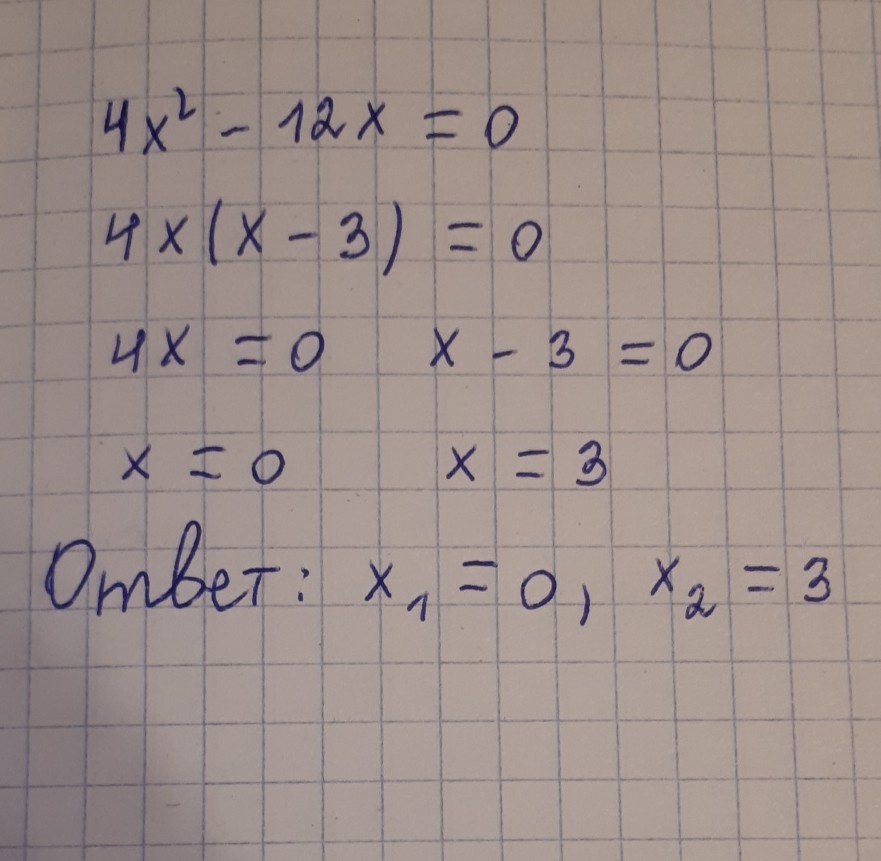 4x² - 12x = 0
4x(x - 3) = 0
4x = 0 x - 3 = 0
x = 0 x = 3
Ответ: x₁ = 0, x₂ = 3